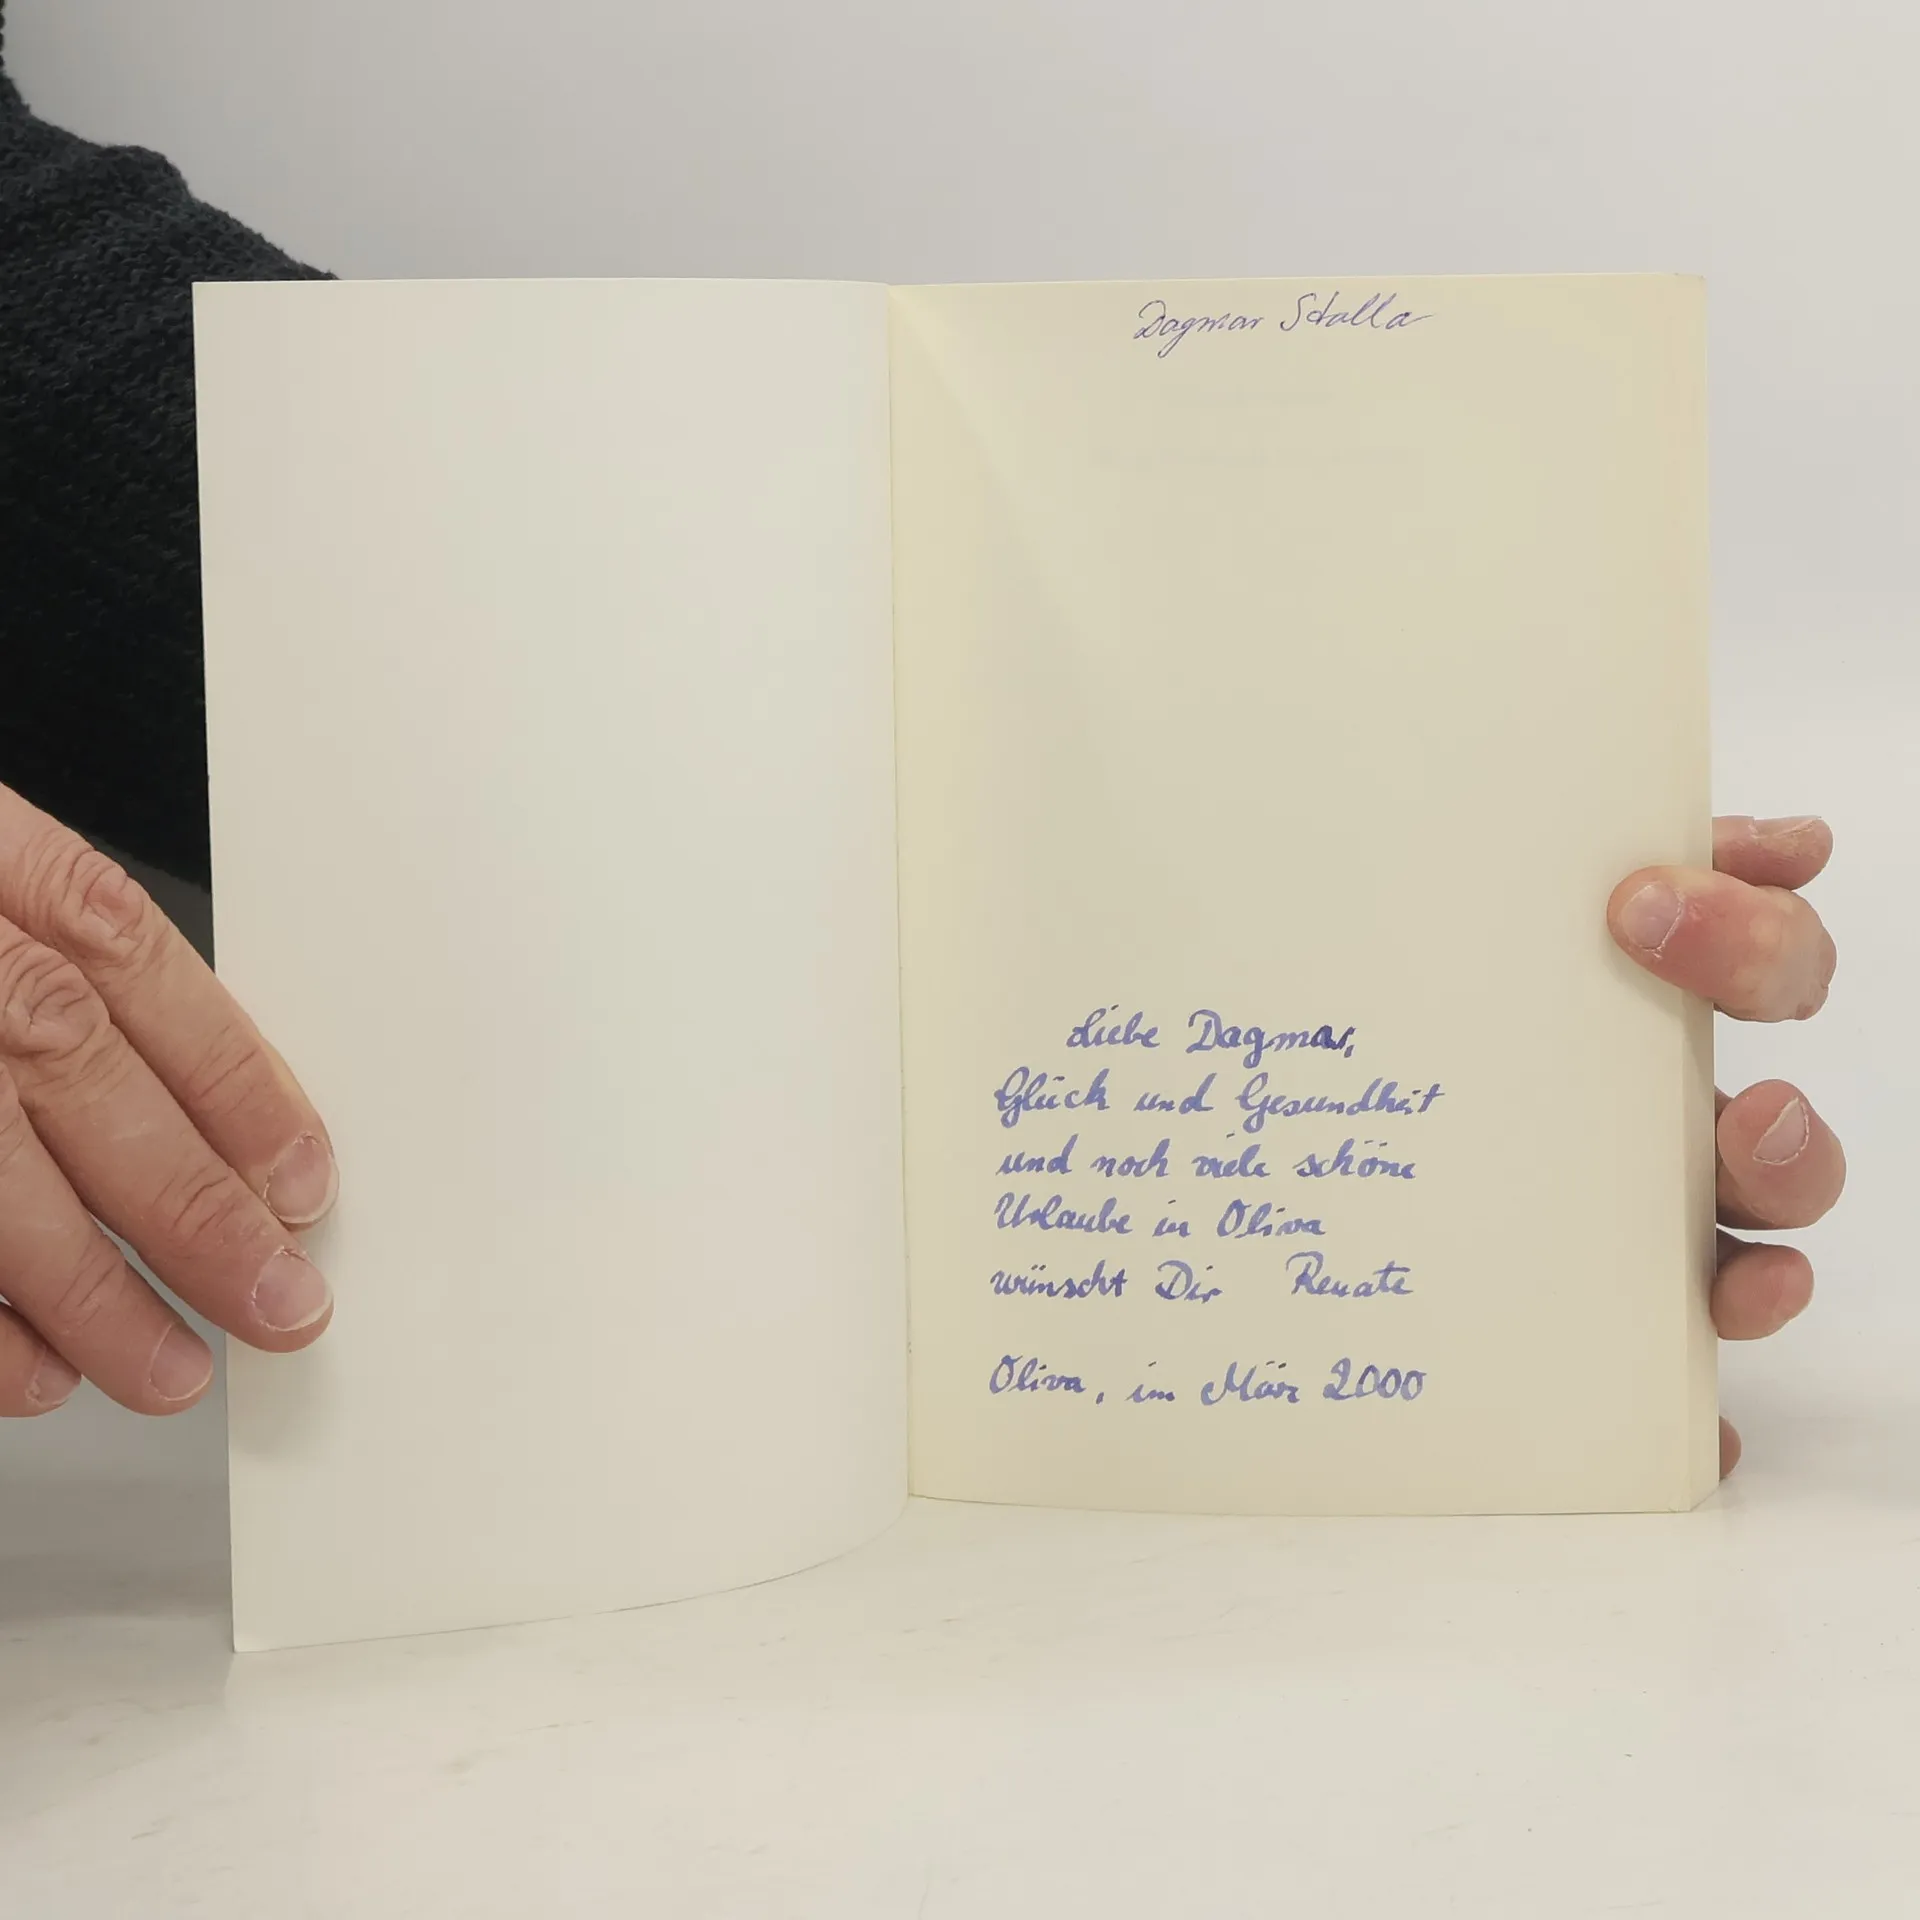 Dagmar Stalla
Liebe Dagmar,
Glück und Gesundheit
und noch viele schöne
Urlaube in Oliva
wünscht Dir Renate
Oliva, im März 2000